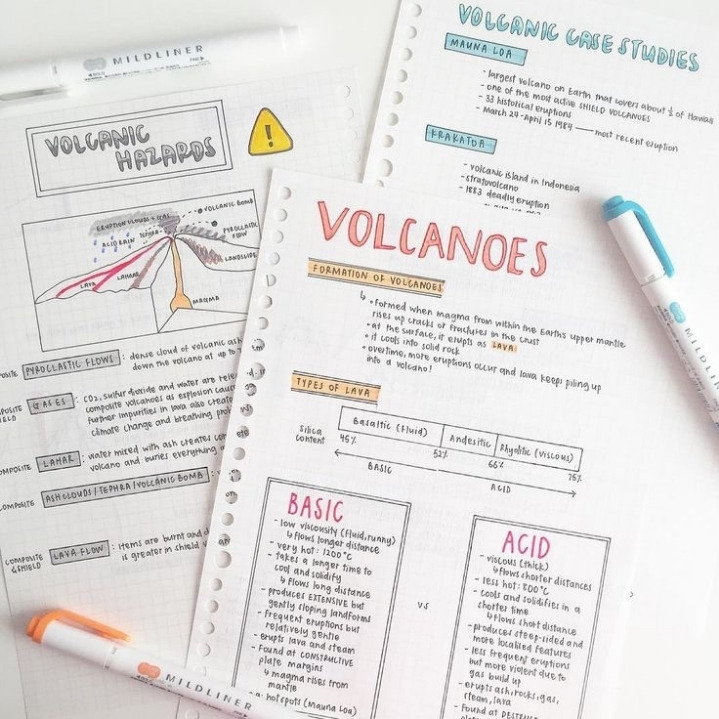 MILDLINER
VOLCANIC CASE STUDIES
MAUNA LOA
- largest volcano on Earth that covers about ½ of Hawaii
- one of the most active SHIELD VOLCANOES
- 33 historical eruptions
- March 24 - April 15 1984 — most recent eruption
KRAKATOA
- volcanic island in Indonesia
- stratovolcano
- 1883 deadly eruption
VOLCANIC
HAZARDS
!
ERUPTION CLOUD
VOLCANIC BOMB
ACID RAIN
PYROCLASTIC
FLOW
LANDSLIDE
LAHAR
LAVA
MAGMA
PYROCLASTIC FLOWS : dense cloud of volcanic ash
down the volcano at up to
GASES : CO₂, sulfur dioxide and water are
composite volcanoes as explosion
further impurities in lava also create
climate change and breathing
COMPOSITE LAHAR : water mixed with ash creates
volcano and buries everything
COMPOSITE ASH CLOUDS / TEPHRA / VOLCANIC BOMB :
COMPOSITE
& SHIELD LAVA FLOW : items are burnt and
is greater in shield
VOLCANOES
FORMATION OF VOLCANOES
↳ • formed when magma from within the Earth's upper mantle
rises up cracks or fractures in the crust
• at the surface, it erupts as LAVA
• it cools into solid rock
• overtime, more eruptions occur and lava keeps piling up
into a volcano!
TYPES OF LAVA
Basaltic (Fluid) Andesitic Rhyolitic (viscous)
Silica
content
45% 52% 66% 75%
BASIC ACID
BASIC
- low viscosity (fluid, runny)
↳ flows longer distance
- very hot : 1200°C
- takes a longer time to
cool and solidify
↳ flows long distance
- produces EXTENSIVE but
gently sloping landforms
- frequent eruptions but
relatively gentle
- erupts lava and steam
- Found at CONSTRUCTIVE
plate margins
↳ magma rises from
mantle
hotspots (Mauna Loa)
VS
ACID
- viscous (thick)
↳ flows shorter distances
- less hot : 800°C
- cools and solidifies in a
shorter time
↳ flows short distance
- produces steep-sided and
more localised features
- less frequent eruptions
but more violent due to
gas build up
- erupts ash, rocks, gas,
steam, lava
- found at
MILDLINER